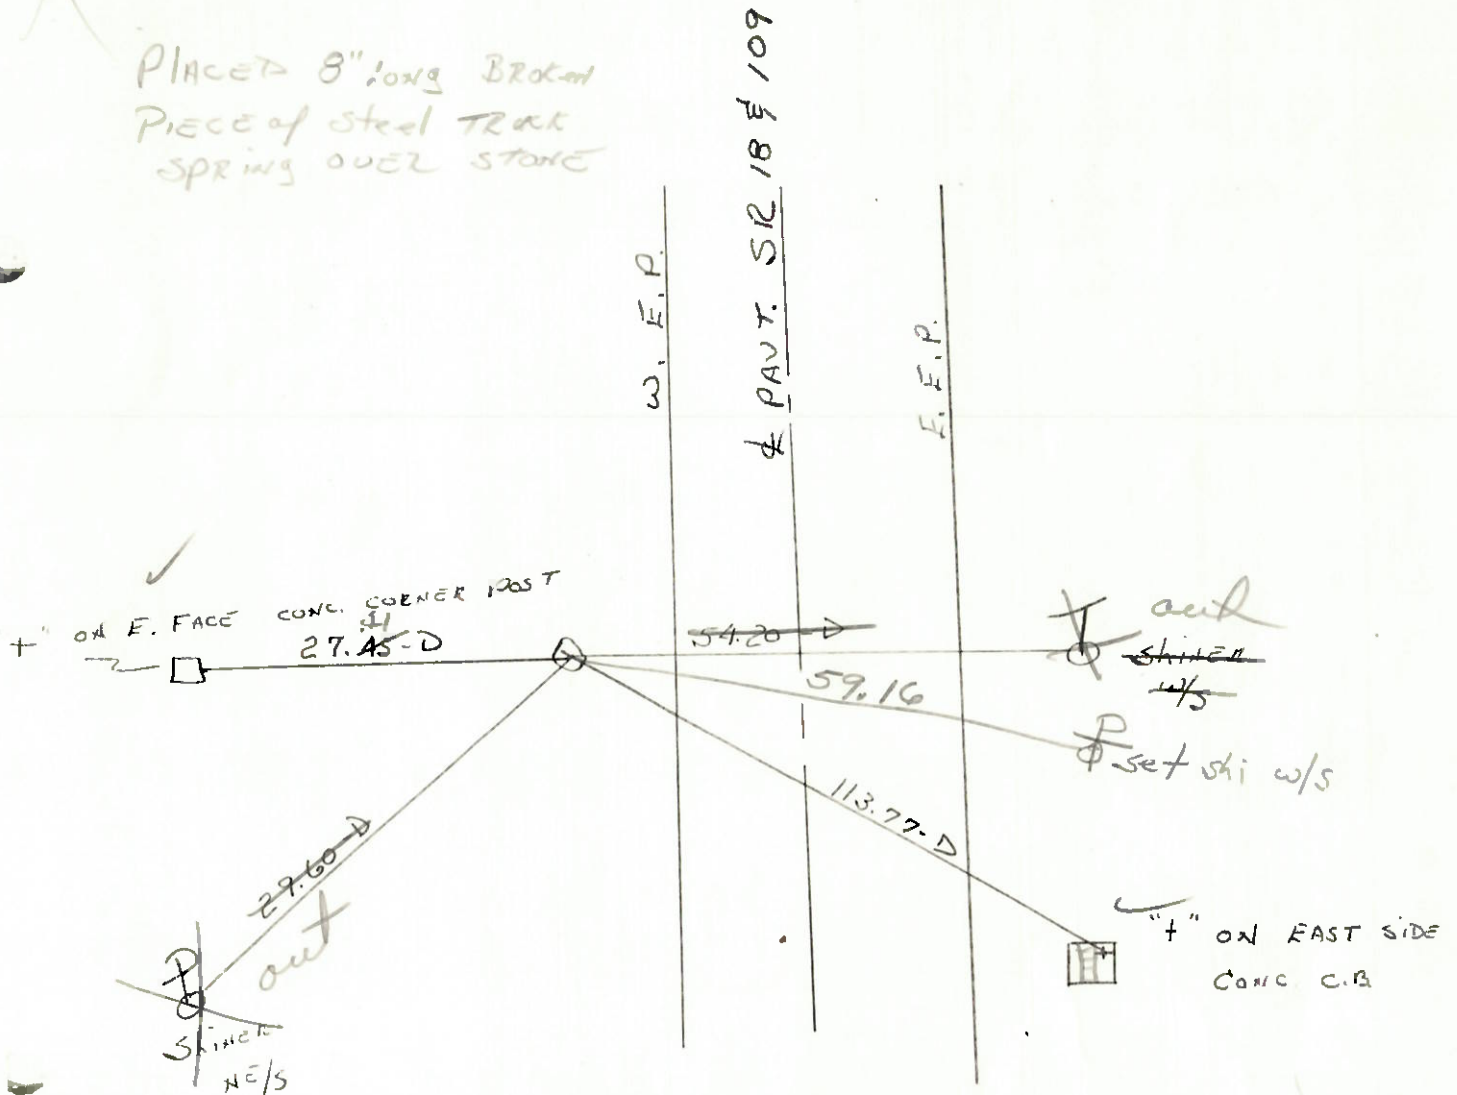 PLACED 8" long BROKEN
PIECE of Steel TRUCK
SPRING OVER STONE
W. E. P.
℄ PAVT. SR 18 & 109
E. E. P.
"+" ON E. FACE CONC. CORNER POST
41
27.45-D
54.20-D
out
Shiner
W/S
59.16
P
set shi w/s
113.77-D
29.60-D
out
P
Shiner
NE/S
"+" ON EAST SIDE
CONC C.B.